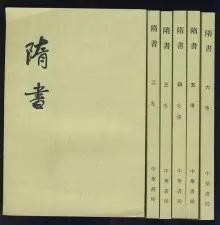 隋書
隋書 二 志
中華書局
隋書 三 志
中華書局
隋書 四 志傳
中華書局
隋書 五 傳
中華書局
隋書 六 傳
中華書局